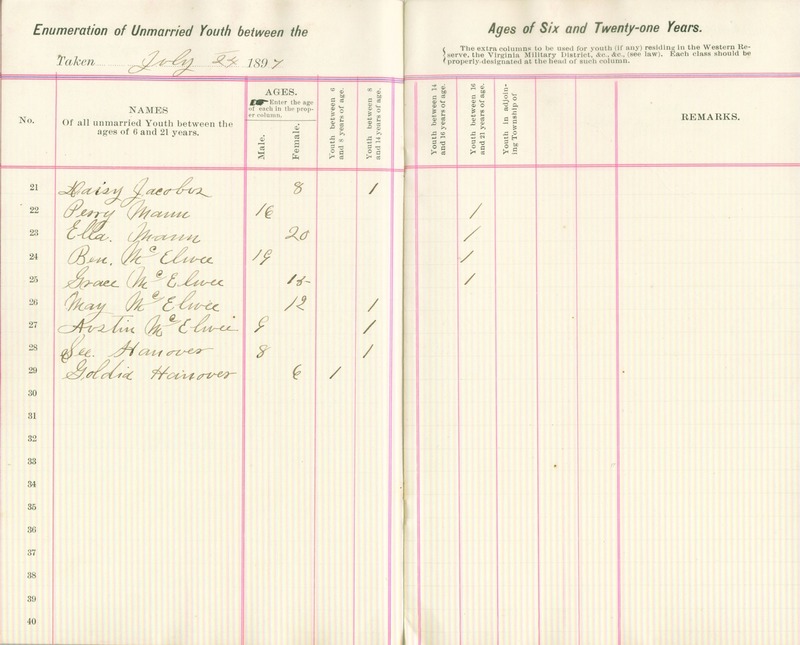 Enumeration of Unmarried Youth between the Ages of Six and Twenty-one Years.
Taken July 24 1897
The extra columns to be used for youth (if any) residing in the Western Re-
serve, the Virginia Military District, &c., &c., (see law). Each class should be
properly-designated at the head of such column.
No.
NAMES
Of all unmarried Youth between the
ages of 6 and 21 years.
AGES.
Enter the age
of each in the prop-
er column.
Male.
Female.
Youth between 6
and 8 years of age.
Youth between 8
and 14 years of age.
Youth between 14
and 16 years of age.
Youth between 16
and 21 years of age.
Youth in adjoin-
ing Township of
REMARKS.
21 Daisy Jacobus 8 1
22 Perry Mann 16 1
23 Ella. Mann 20 1
24 Ben. McElwee 19 1
25 Grace McElwee 15 1
26 May McElwee 12 1
27 Austin McElwee 9 1
28 Hanover 8 1
29 Goldia Hanover 6 1
30
31
32
33
34
35
36
37
38
39
40